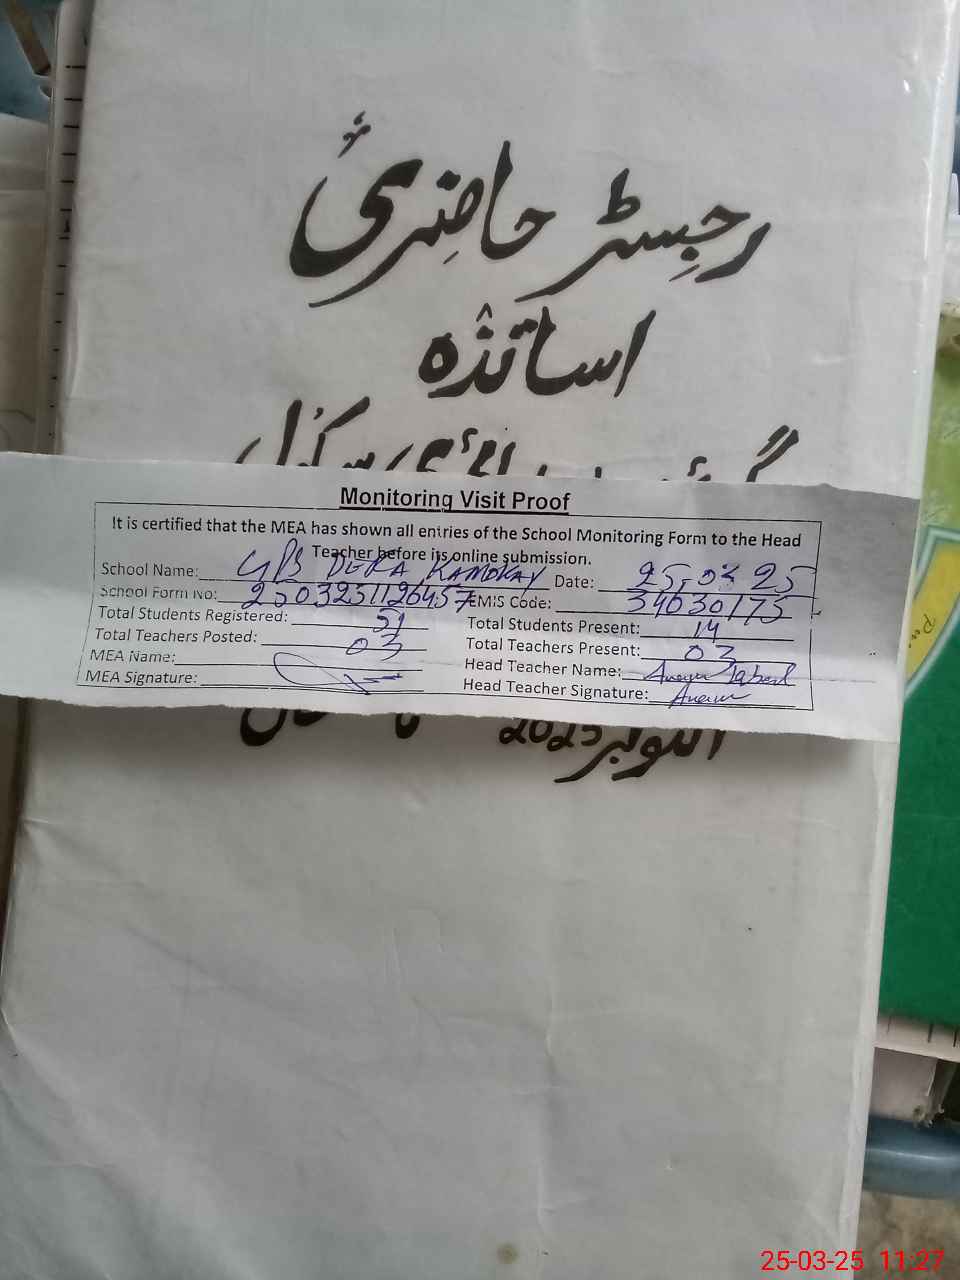 رجسٹر حاضریٔ
اساتذہ
Monitoring Visit Proof
It is certified that the MEA has shown all entries of the School Monitoring Form to the Head
Teacher before its online submission.
School Name: DERA KAMOKAY Date: 25.03.25
School Form No: 2503251126457 EMIS Code: 34030175
Total Students Registered: 51 Total Students Present: 14
Total Teachers Posted: 03 Total Teachers Present: 03
MEA Name: Head Teacher Name:
MEA Signature: Head Teacher Signature:
اکتوبر 2023
25-03-25 11:27